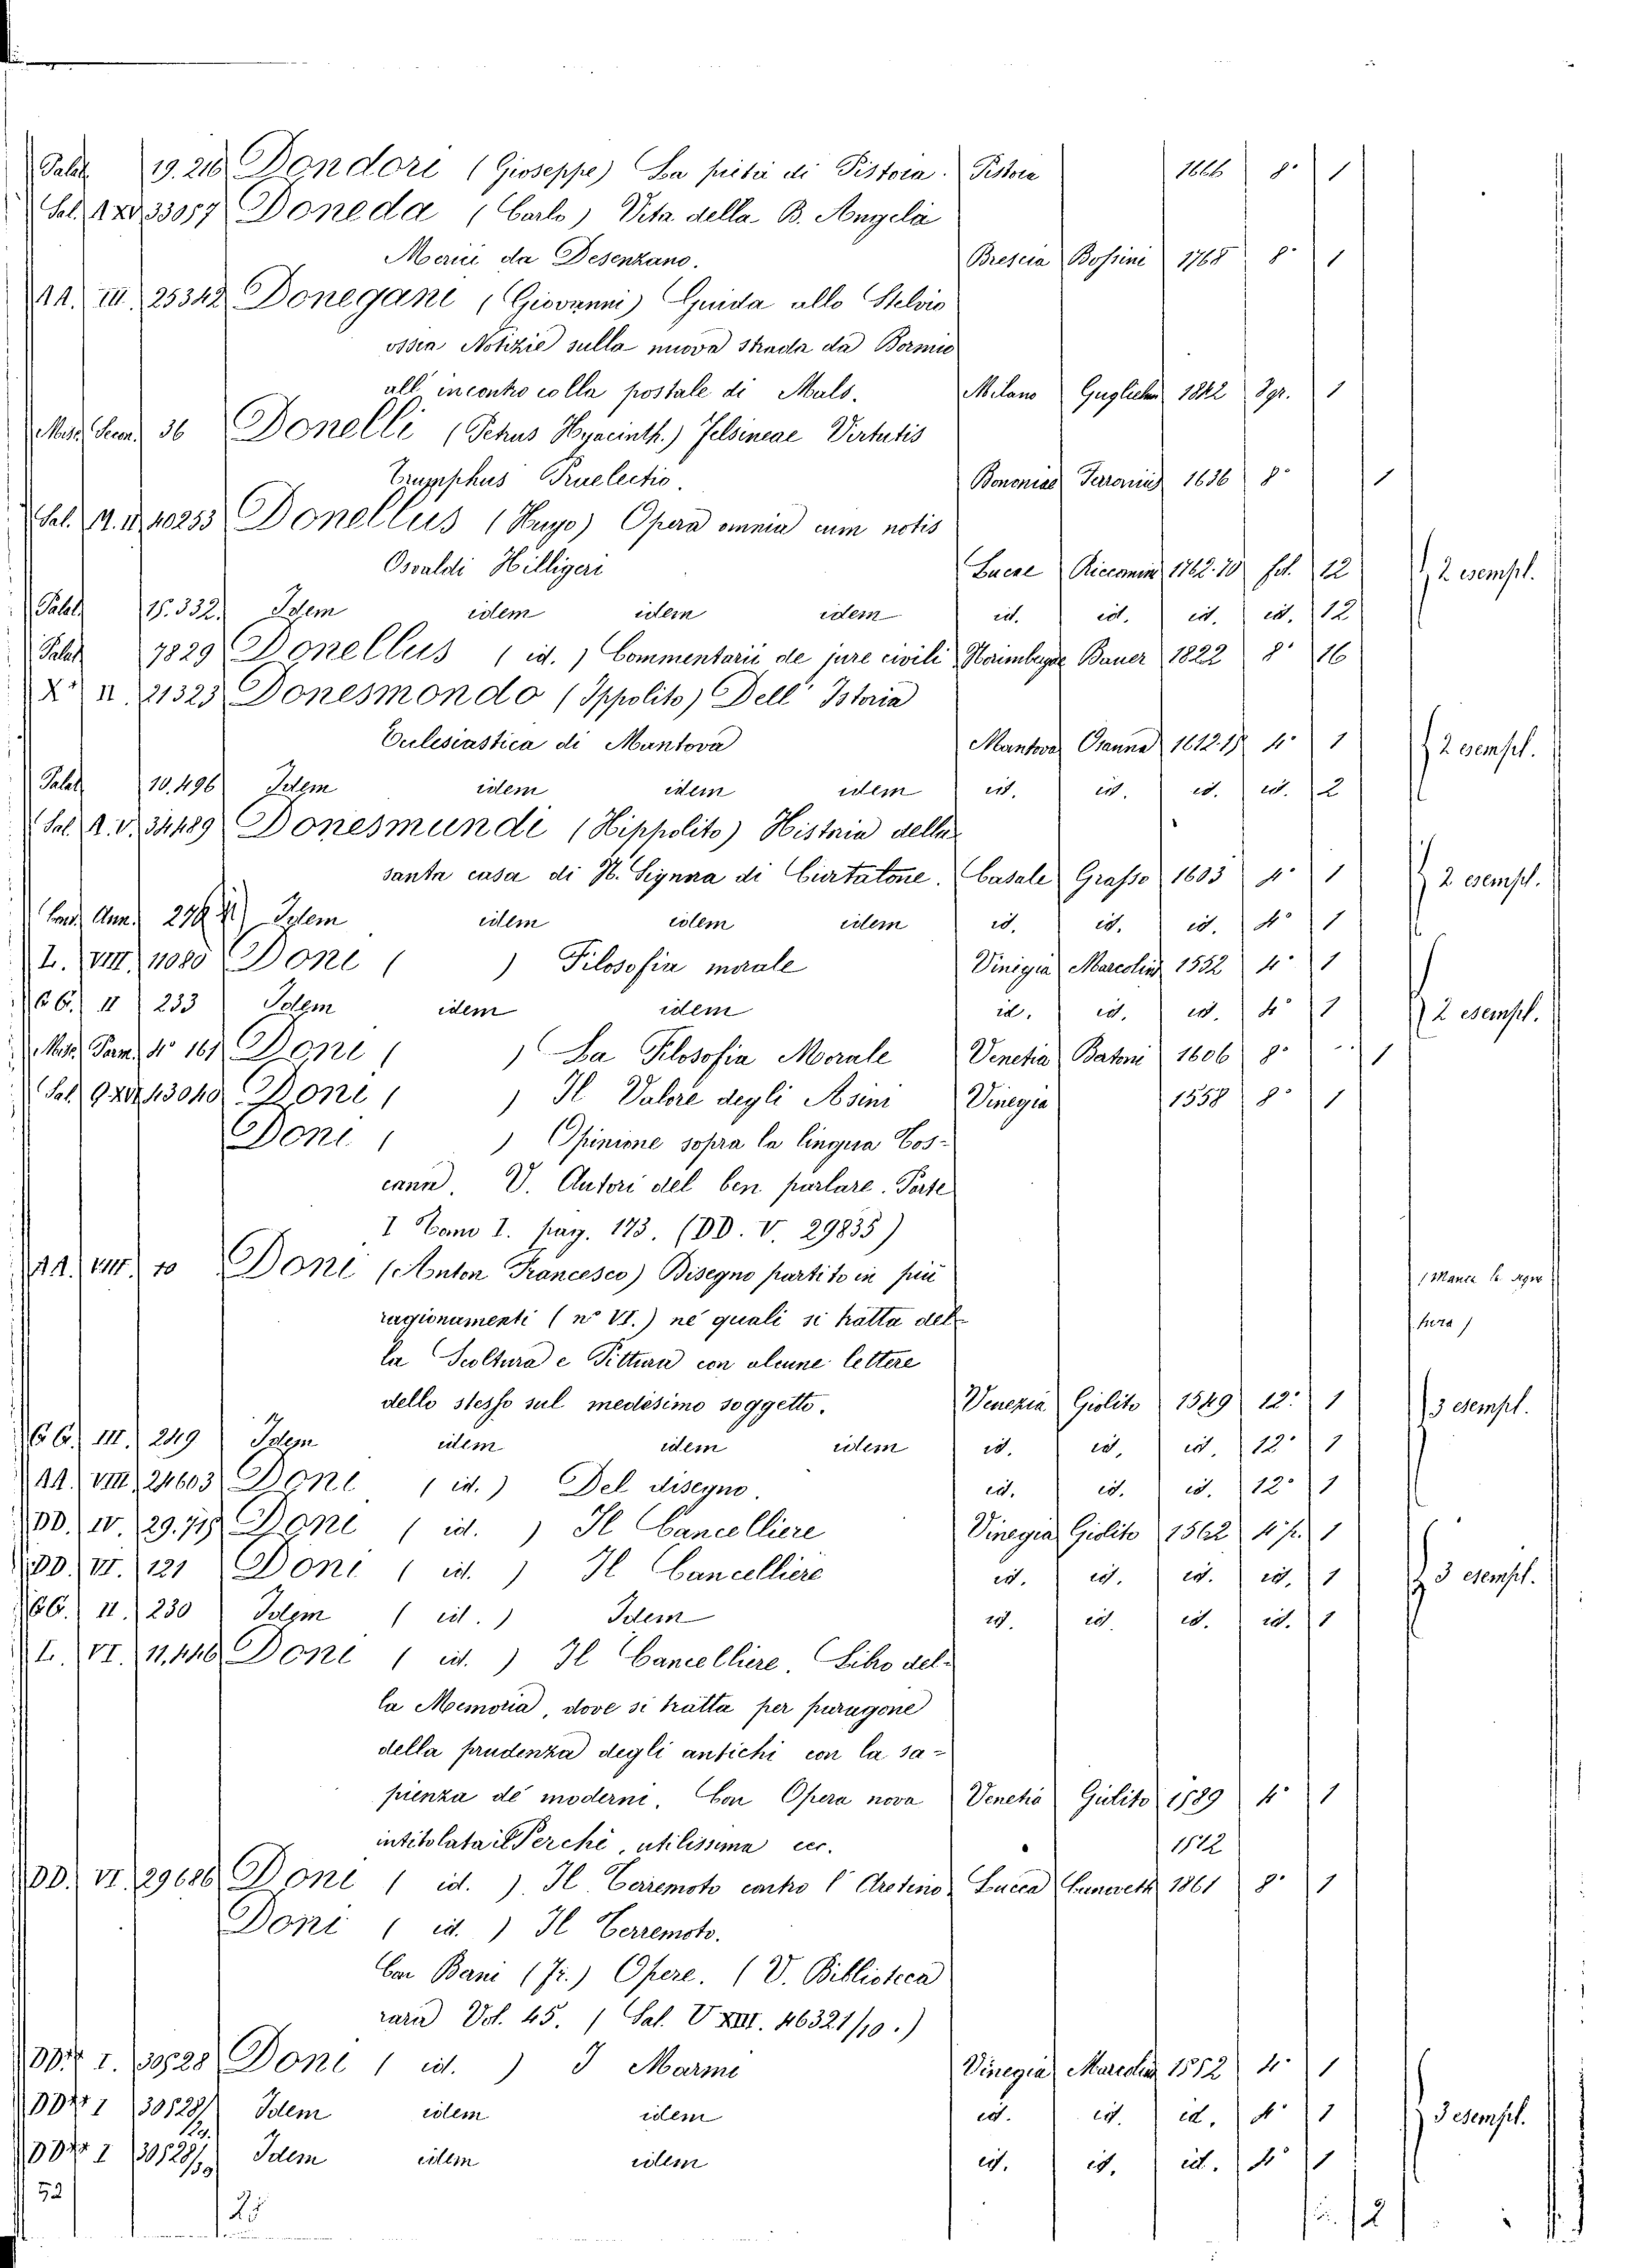 Palat. 19.216 Dondori (Gioseppe) La pietà di Pistoia. Pistoia 1666 8° 1
Sal. 33057 Doneda (Carlo) Vita della B. Angela
Merici da Desenzano. Brescia Bossini 1768 8° 1
AA. III. 25342 Donegani (Giovanni) Guida allo Stelvio
ossia Notizie sulla nuova strada da Bormio
all' incontro colla postale di Mals. Milano 1842 8gr. 1
36 Donelli (Petrus Hyacinth.) Felsineae Virtutis
Praelectio. Bononiae 1636 8° 1
Sal. 40253 Donellus (Hugo) Opera omnia cum notis
Osvaldi Hilligeri Lucae Riccomini 1762.70 fol. 12 2 esempl.
Palat. 15.332. Idem idem idem idem id. id. id. id. 12
Palat. 7829 Donellus (id.) Commentarii de jure civili Bauer 1822 8° 16
II. 21323 Donesmondo (Ippolito) Dell' Istoria
Eclesiastica di Mantova Mantova Osanna 1612.15 4° 1 2 esempl.
Palat. 10.496 Idem idem idem idem id. id. id. id. 2
Sal. A.V. 34489 Donesmundi (Hippolito) Histria della
santa casa di N. Signra di Curtatone. Casale Grasso 1603 4° 1 2 esempl.
Idem idem idem idem id. id. id. 4° 1
L. VIII. 11080 Doni ( ) Filosofia morale Vinigia Marcolini 1552 4° 1
II 233 Idem idem idem id. id. id. 4° 1 2 esempl.
4° 161 Doni ( ) La Filosofia Morale Venetia Batoni 1606 8° 1
Sal. 43040 Doni ( ) Il Valore degli Asini Vinegia 1558 8° 1
Doni ( ) Opinione sopra la lingua Tos-
cana. V. Autori del ben parlare. Parte
I Tomo I. pag. 173. (DD. V. 29835)
AA. VIII. 10 Doni (Anton Francesco) Disegno partito in più
ragionamenti (n° VI.) ne' quali si tratta del-
la Scoltura e Pittura con alcune lettere
dello stesso sul medesimo soggetto. Venezia Giolito 1549 12° 1 3 esempl.
III. 249 Idem idem idem idem id. id. id. 12° 1
AA. VIII. 24603 Doni (id.) Del disegno. id. id. id. 12° 1
DD. IV. 29.715 Doni (id.) Il Cancelliere Vinegia Giolito 1562 4° p. 1
DD. VI. 121 Doni (id.) Il Cancelliere id. id. id. id. 1 3 esempl.
II. 230 Idem (id.) Idem id. id. id. id. 1
L. VI. 11.446 Doni (id.) Il Cancelliere. Libro del-
la Memoria, dove si tratta per paragone
della prudenza degli antichi con la sa-
pienza de' moderni. Con Opera nova Venetia Giolito 1589 4° 1
intitolata il Perchè, utilissima ecc.
DD. VI. 29686 Doni (id.) Il Terremoto contro l' Aretino Lucca 1861 8° 1
Doni (id.) Il Terremoto.
Con Berni (Fr.) Opere. (V. Biblioteca
rara Vol. 45. (Sal. V XIII. 46321/10.)
I. 30528 Doni (id.) I Marmi Vinegia Marcolini 1552 4° 1
I 30528/ Idem idem idem id. id. id. 4° 1 3 esempl.
I 30528/ Idem idem idem id. id. id. 4° 1
52
25
2